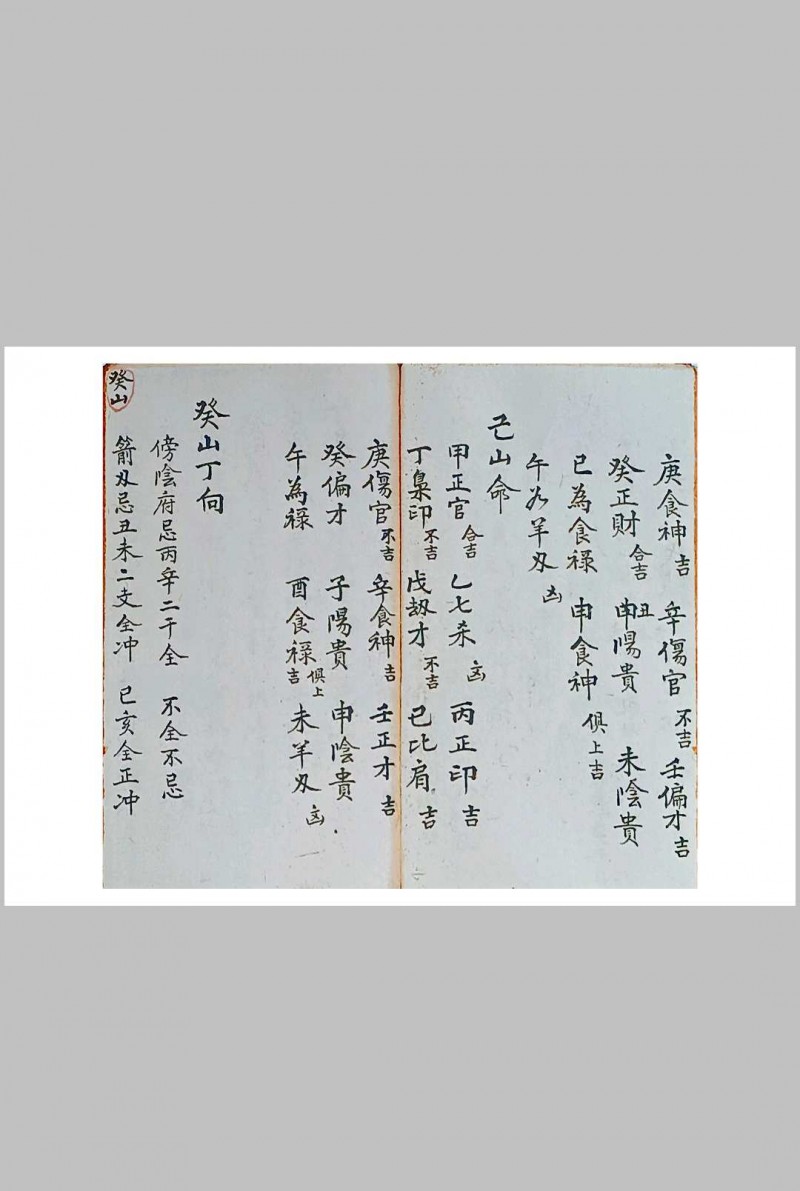 庚食神 吉 辛傷官 不吉 壬偏才 吉
癸正財 合吉 丑申陽貴 未陰貴
巳為食祿 申食神 俱上吉
午為羊刃 凶
己山命
甲正官 合吉 乙七杀 凶 丙正印 吉
丁梟印 不吉 戊刼才 不吉 己比肩 吉
庚傷官 不吉 辛食神 吉 壬正才 吉
癸偏才 子陽貴 申陰貴
午為祿 酉食祿 俱上吉 未羊刃 凶
癸山丁向
傍陰府忌丙辛二干全 不全不忌
箭刃忌丑未二支全冲 巳亥全正冲
癸山